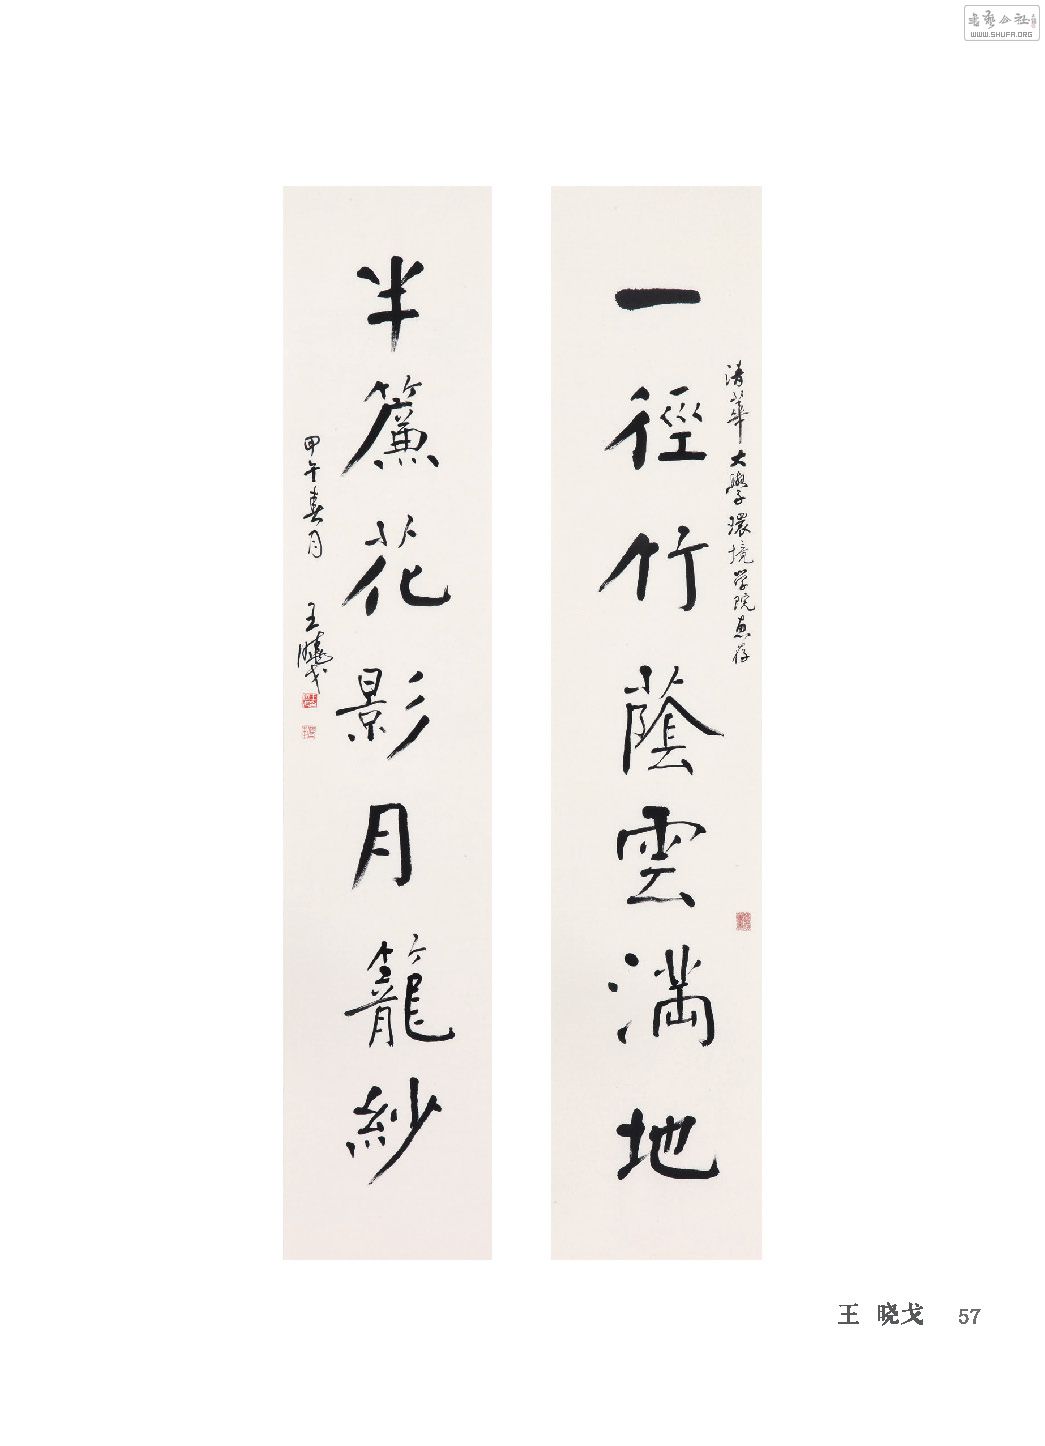 清華大學環境学院惠存
一徑竹蔭雲滿地
半簾花影月籠紗
甲午春月
王曉戈
王 晓戈 57
WWW.SHUFA.ORG